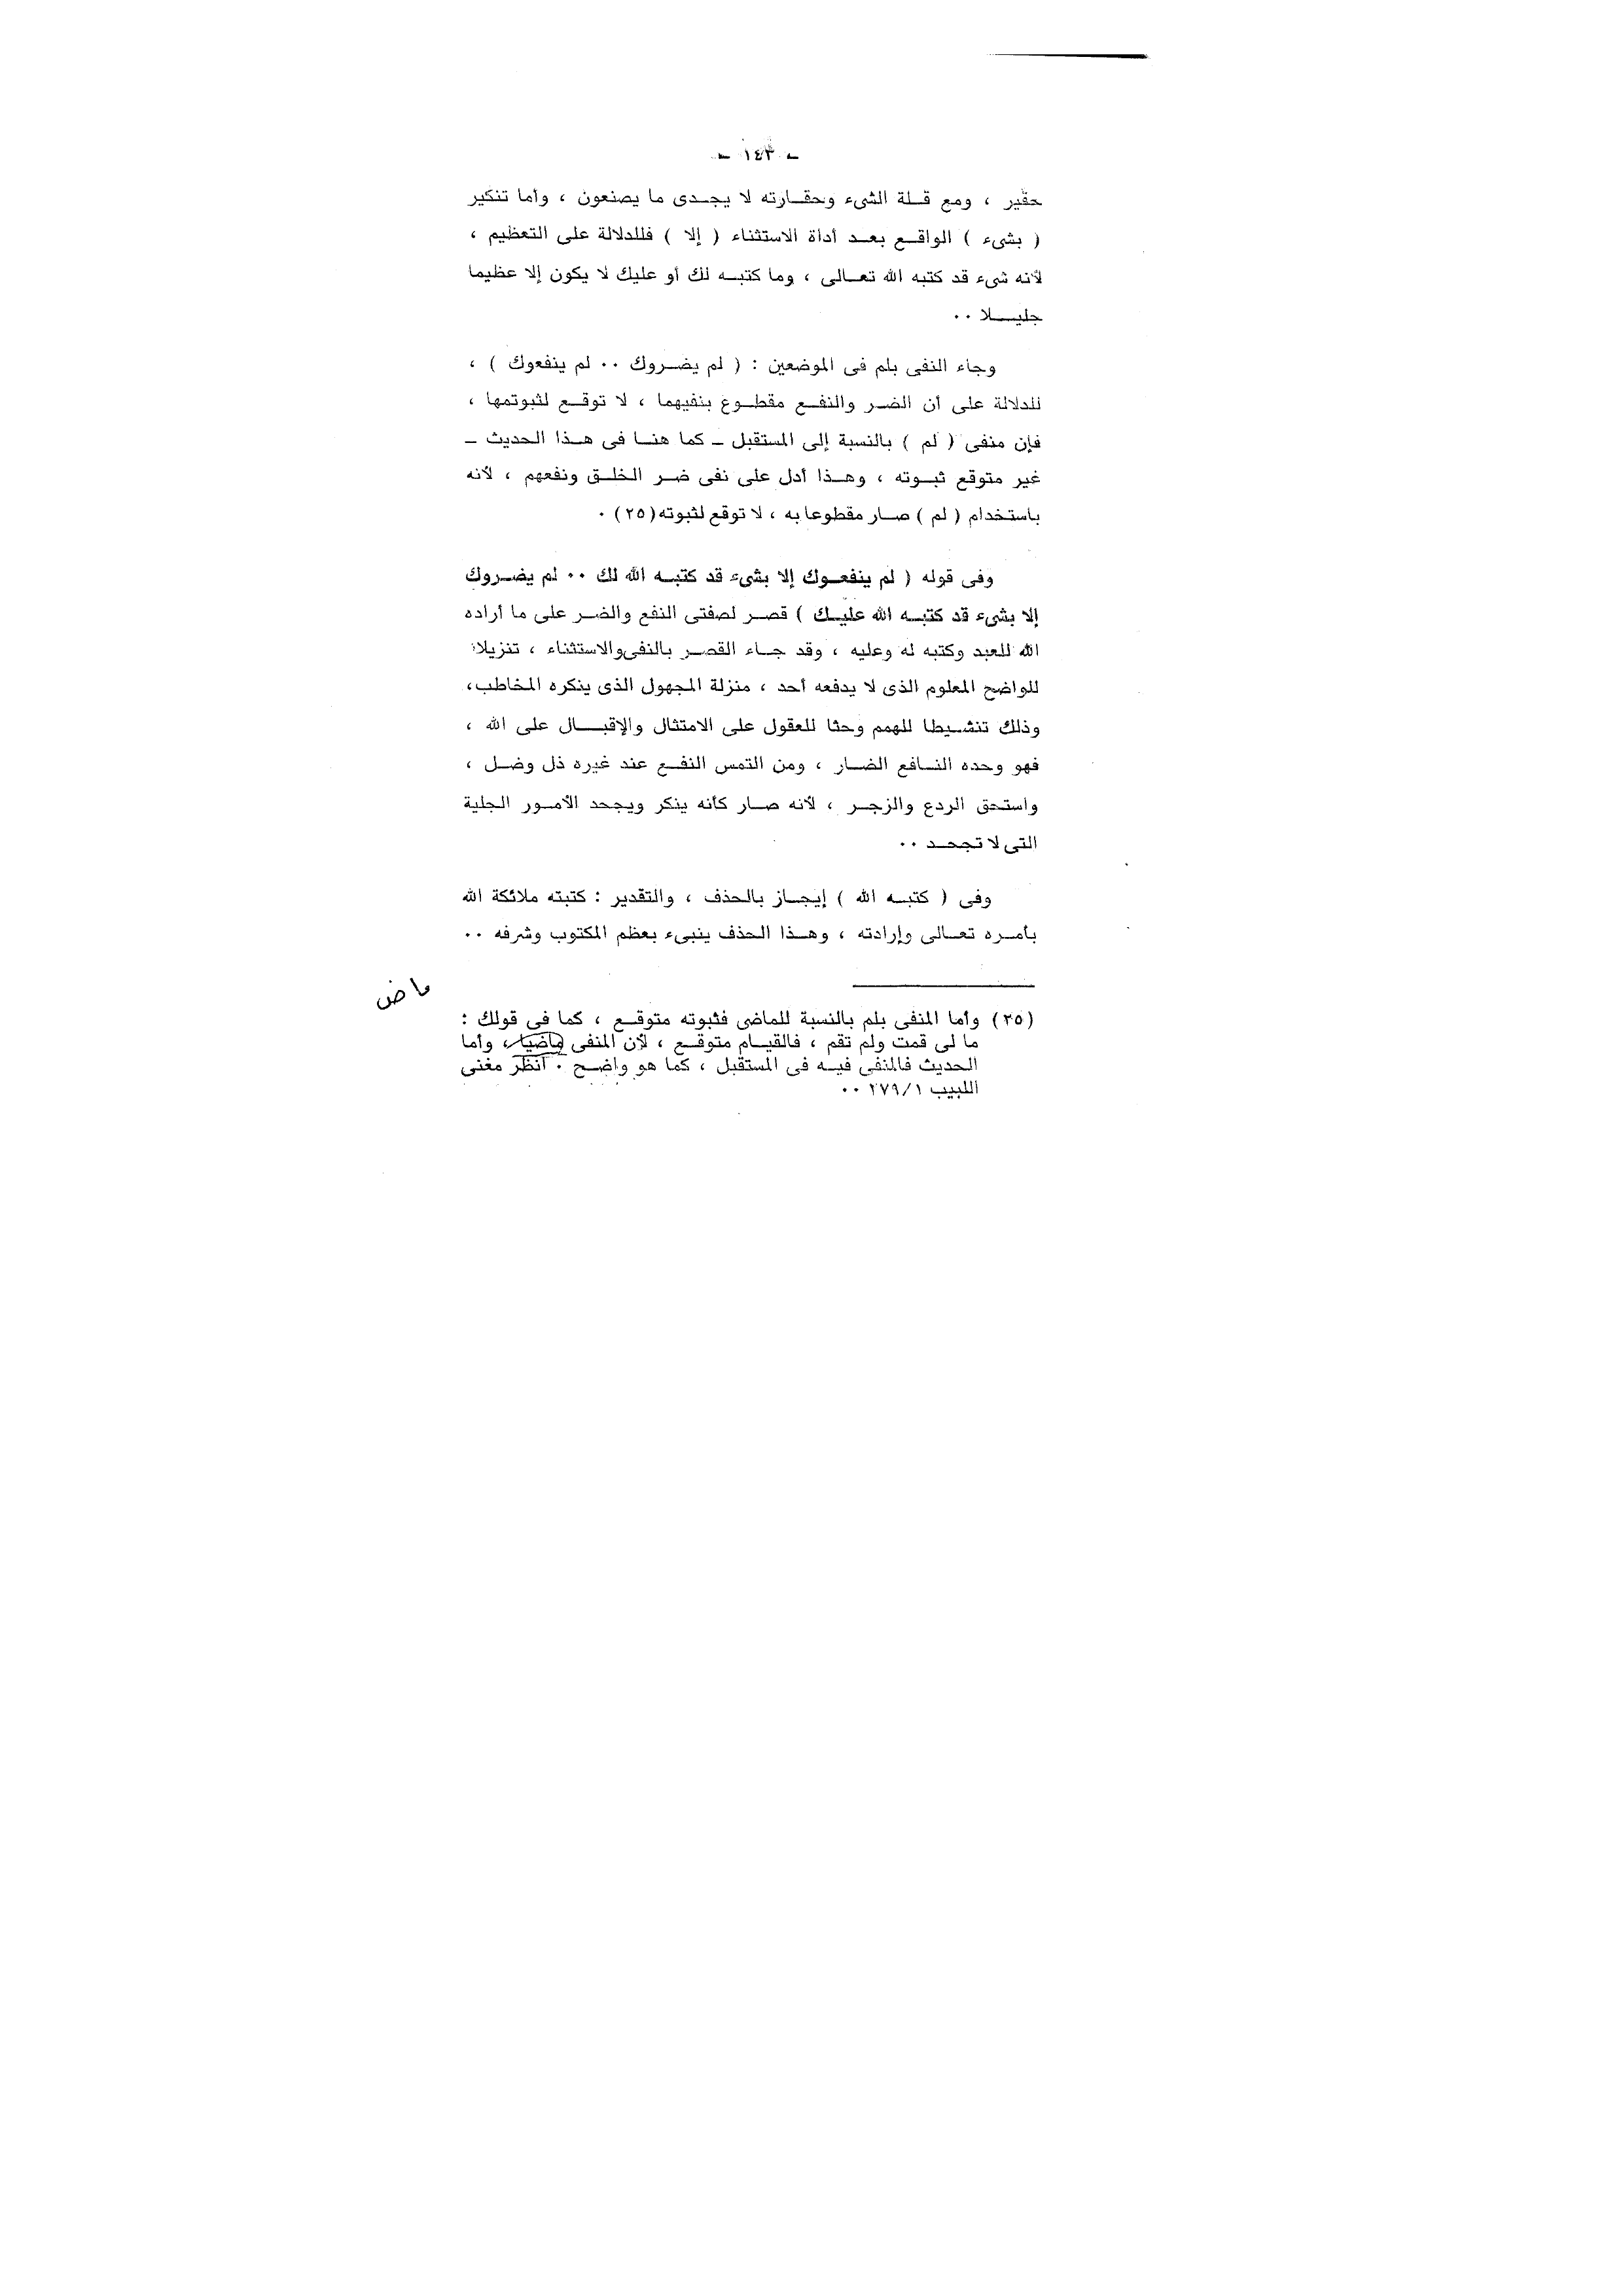 – ١٤٣ –
حقير ، ومع قلة الشىء وحقارته لا يجدى ما يصنعون ، وأما تنكير
( بشىء ) الواقع بعد أداة الاستثناء ( إلا ) فللدلالة على التعظيم ،
لأنه شىء قد كتبه الله تعالى ، وما كتبه لك أو عليك لا يكون إلا عظيما
جليلا ٠٠
وجاء النفى بلم فى الموضعين : ( لم يضروك ٠٠ لم ينفعوك ) ،
للدلالة على أن الضر والنفع مقطوع بنفيهما ، لا توقع لثبوتمها ،
فإن منفى ( لم ) بالنسبة إلى المستقبل – كما هنا فى هذا الحديث –
غير متوقع ثبوته ، وهذا أدل على نفى ضر الخلق ونفعهم ، لأنه
باستخدام ( لم ) صار مقطوعا به ، لا توقع لثبوته (٢٥) ٠
وفى قوله ( لم ينفعوك إلا بشىء قد كتبه الله لك ٠٠ لم يضروك
إلا بشىء قد كتبه الله عليك ) قصر لصفتى النفع والضر على ما أراده
الله للعبد وكتبه له وعليه ، وقد جاء القصر بالنفى والاستثناء ، تنزيلا
للواضح المعلوم الذى لا يدفعه أحد ، منزلة المجهول الذى ينكره المخاطب،
وذلك تنشيطا للهمم وحثا للعقول على الامتثال والإقبال على الله ،
فهو وحده النافع الضار ، ومن التمس النفع عند غيره ذل وضل ،
واستحق الردع والزجر ، لأنه صار كأنه ينكر ويجحد الأمور الجلية
التى لا تجحد ٠٠
وفى ( كتبه الله ) إيجاز بالحذف ، والتقدير : كتبته ملائكة الله
بأمره تعالى وإرادته ، وهذا الحذف ينبىء بعظم المكتوب وشرفه ٠٠
ماض
(٢٥) وأما المنفى بلم بالنسبة للماضى فثبوته متوقع ، كما فى قولك :
ما لى قمت ولم تقم ، فالقيام متوقع ، لأن المنفى ماضيا، وأما
الحديث فالمنفى فيه فى المستقبل ، كما هو واضح ٠ أنظر مغنى
اللبيب ٢٧٩/١ ٠٠